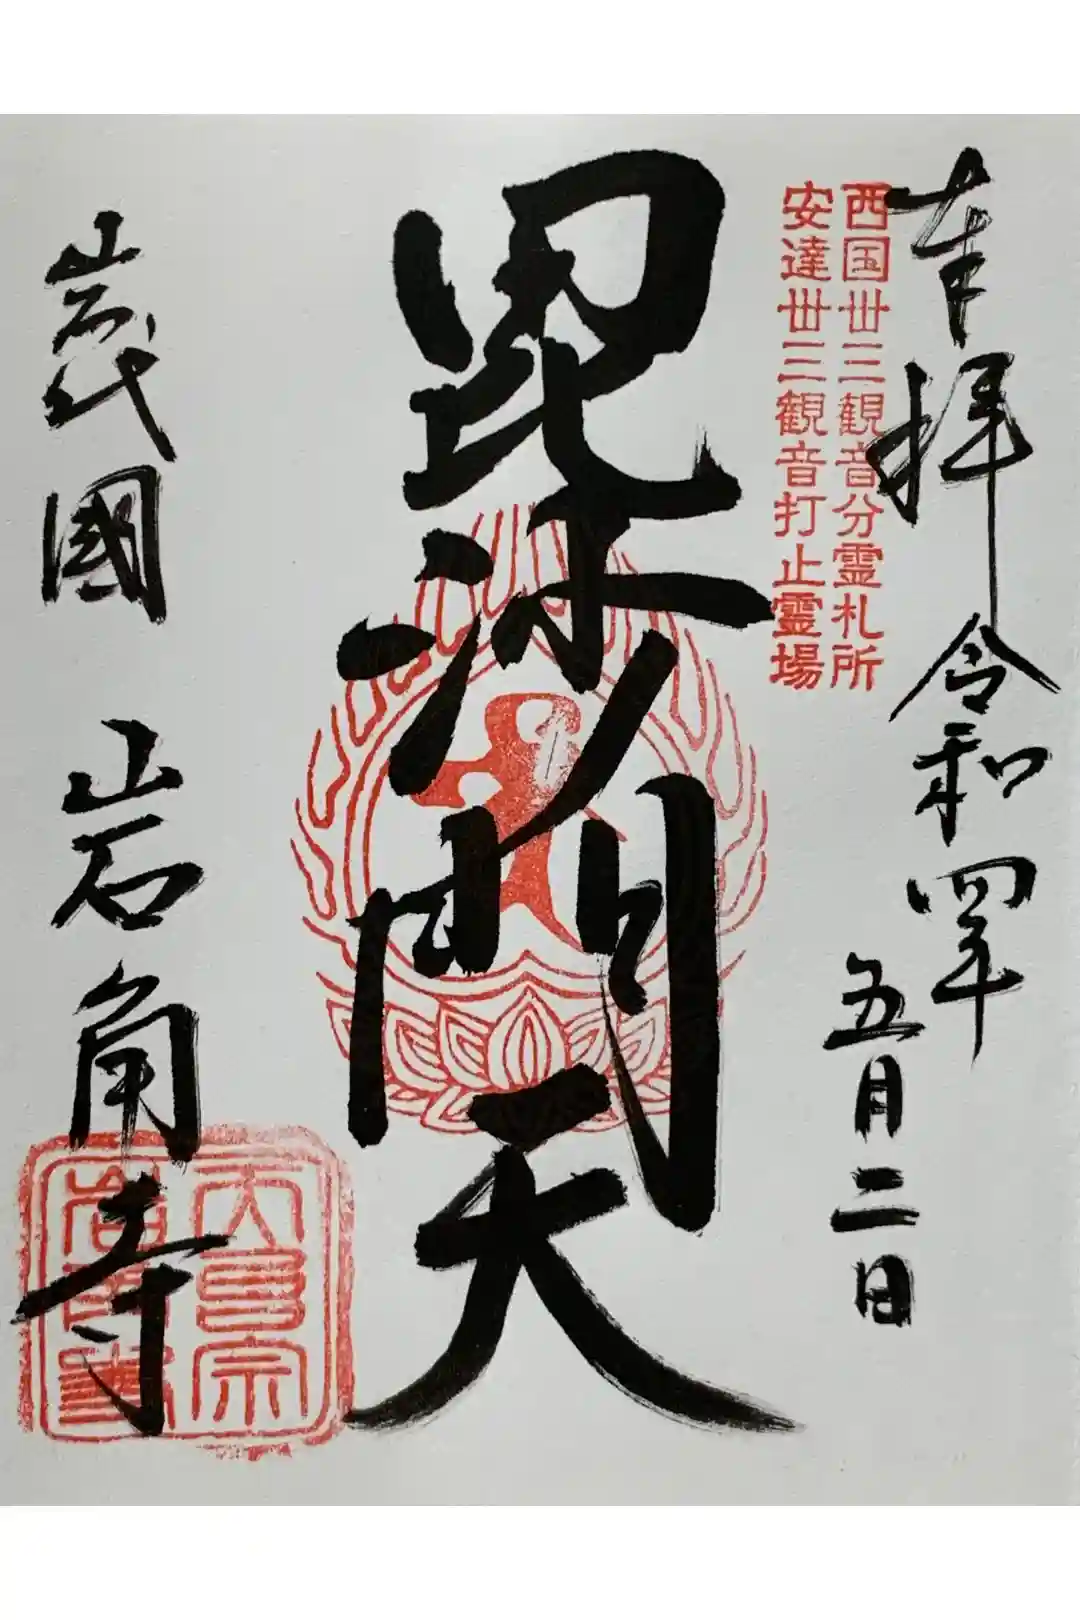 奉拝 令和四年
五月二日
西国丗三観音分霊札所
安達丗三観音打止霊場
毘沙門天
岩代國 岩角寺
天台宗